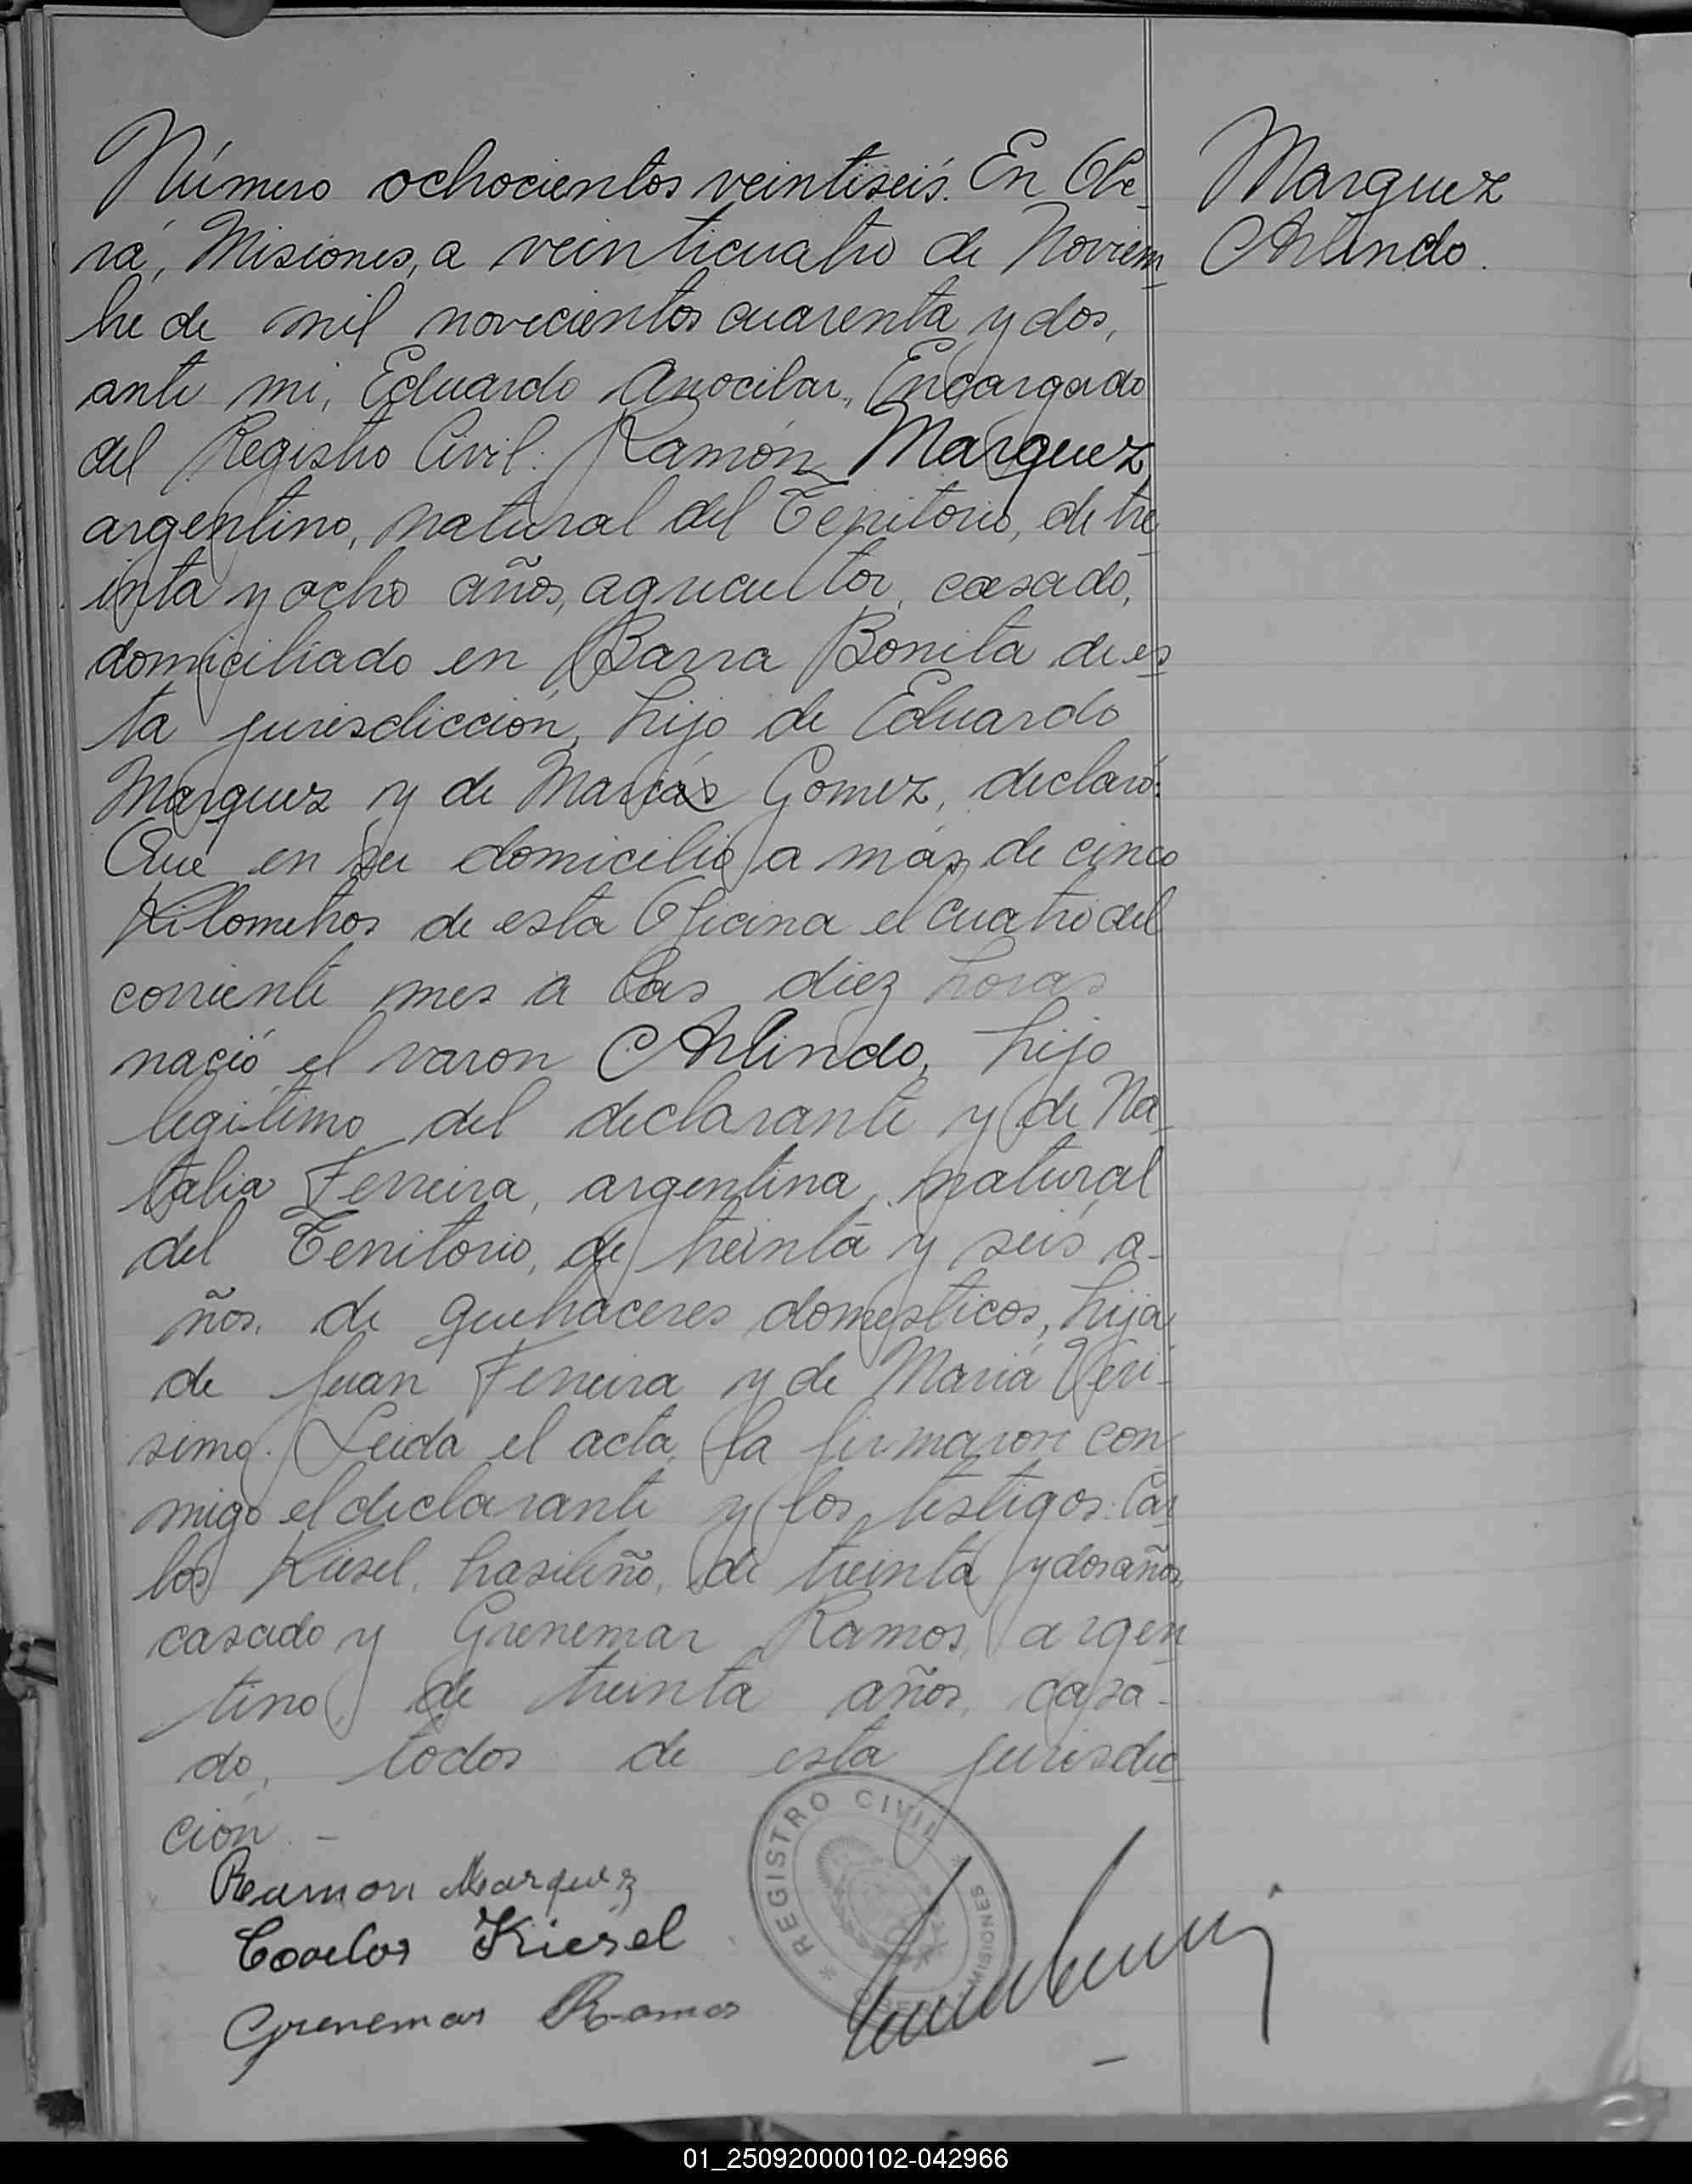 Número ochocientos veintiseis. En Obe-
rá, Misiones, a veinticuatro de Noviem-
bre de mil novecientos cuarenta y dos,
ante mi, Eduardo Encargado
del Registro Civil: Ramón Marquez,
argentino, natural del Territorio, de tre-
inta y ocho años, agricultor, casado,
domiciliado en Barra Bonita de es-
ta jurisdicción, hijo de Eduardo
Marquez y de Maria Gomez, declaró:
Que en su domicilio a más de cinco
Kilometros de esta Oficina el cuatro del
corriente mes a las diez horas
nació el varon Arlindo, hijo
legitimo del declarante y de Na-
talia Ferreira, argentina, natural
del Territorio, de treinta y seis a-
ños, de quehaceres domesticos, hija
de Juan Ferreira y de Maria Veri-
simo. Leida el acta, la firmaron con-
migo el declarante y los testigos: Car-
los Kiesel, brasileño, de treinta y dos años,
casado y Grenemar Ramos, argen-
tino, de treinta años, casa-
do, todos de esta jurisdic-
ción. -
Ramon Marquez
Carlos Kiesel
Grenemar Ramos
* REGISTRO CIVIL *
OBERÁ - MISIONES
Marquez
Arlindo.
01_250920000102-042966